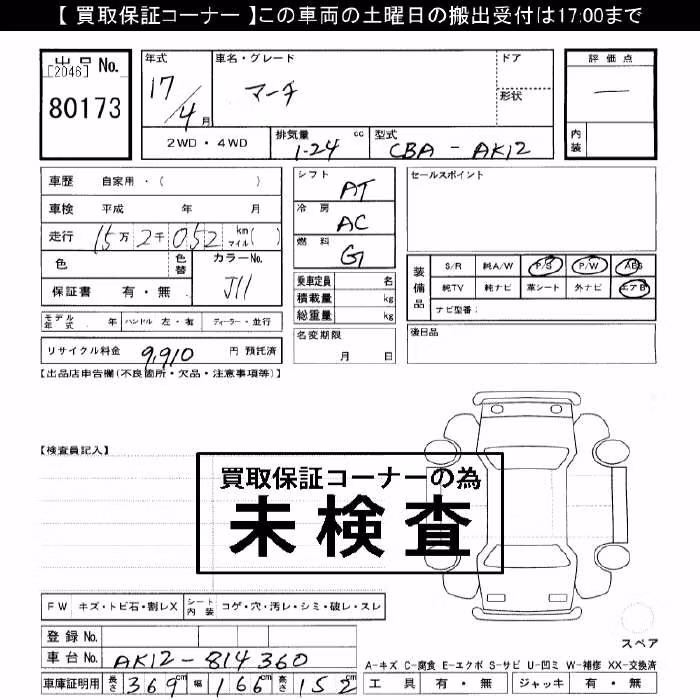 【 買取保証コーナー 】この車両の土曜日の搬出受付は17:00まで
出品 No.
[2046]
80173
年式 17/4月
車名・グレード マーチ
ドア
形状
2WD・4WD
排気量 1-24 cc
型式 CBA - AK12
評価点 —
内装
車歴 自家用・( )
車検 平成 年 月
走行 15万2千052 km マイル( )
色 色替 カラーNo. J11
保証書 有・無
モデル年式 年 ハンドル 左・右 ディーラー・並行
リサイクル料金 9,910 円 預託済
シフト AT
冷房 AC
燃料 G
乗車定員 名
積載量 kg
総重量 kg
名変期限 月 日
セールスポイント
装備品 S/R 純A/W P/S P/W ABS
純TV 純ナビ 革シート 外ナビ エアB
ナビ型番:
後日品
【出品店申告欄(不良箇所・欠品・注意事項等)】
【検査員記入】
買取保証コーナーの為
未検査
FW キズ・トビ石・割レX シート内装 コゲ・穴・汚レ・シミ・破レ・スレ
登録 No.
車台 No. AK12-814360
車庫証明用 長さ 369cm 幅 166cm 高さ 152cm
スペア
A-キズ C-腐食 E-エクボ S-サビ U-凹ミ W-補修 XX-交換済
工具 有・無 ジャッキ 有・無